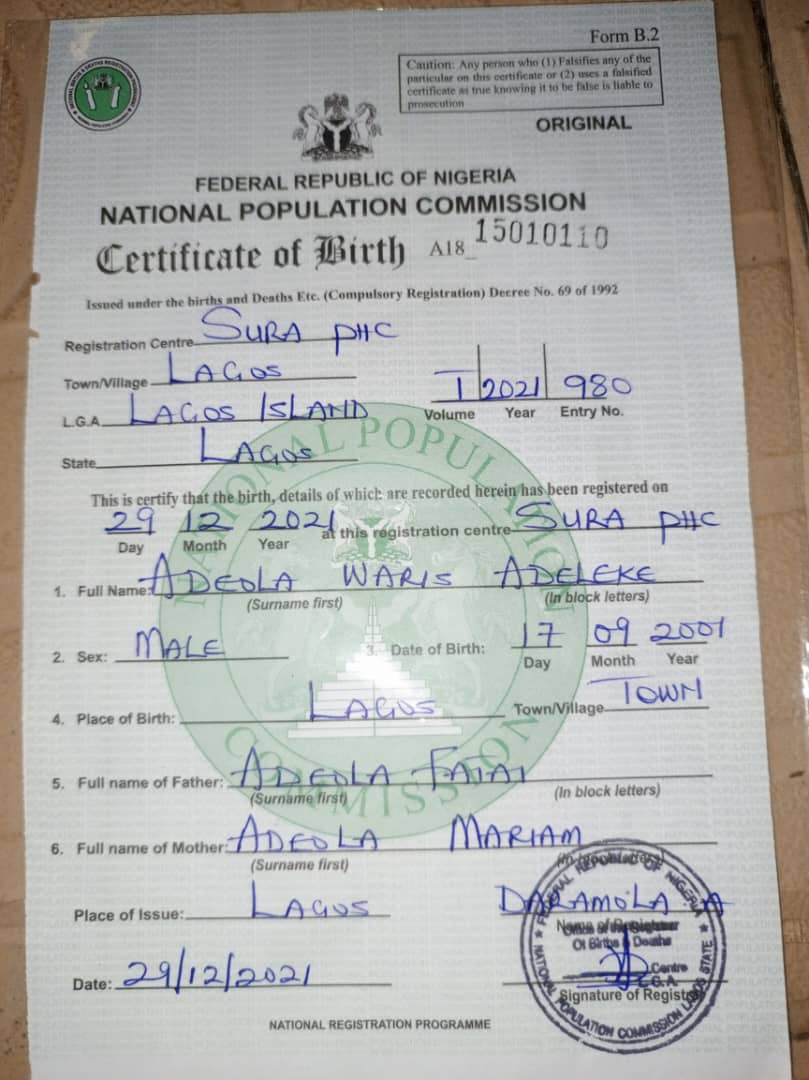 Form B.2
Caution: Any person who (1) Falsifies any of the
particular on this certificate or (2) uses a falsified
certificate as true knowing it to be false is liable to
prosecution
ORIGINAL
FEDERAL REPUBLIC OF NIGERIA
NATIONAL POPULATION COMMISSION
Certificate of Birth A18_ 15010110
Issued under the births and Deaths Etc. (Compulsory Registration) Decree No. 69 of 1992
Registration Centre SURA PHC
Town/Village LAGOS
I 2021 980
L.G.A. LAGOS ISLAND Volume Year Entry No.
State LAGOS
NATIONAL POPULATION COMMISSION
This is certify that the birth, details of which are recorded herein has been registered on
29 12 2021 at this registration centre SURA PHC
Day Month Year
1. Full Name: ADEOLA WARIS ADELEKE
(Surname first) (In block letters)
2. Sex: MALE 3. Date of Birth: 17 09 2001
Day Month Year
4. Place of Birth: LAGOS Town/Village TOWN
5. Full name of Father: ADEOLA FATAI
(Surname first) (In block letters)
6. Full name of Mother: ADEOLA MARIAM
(Surname first) (In block letters)
Place of Issue: LAGOS DARAMOLA A
Name of Registrar
Of Births & Deaths
Centre
L.G.A.
Date: 29/12/2021
Signature of Registrar
FEDERAL REPUBLIC OF NIGERIA
NATIONAL POPULATION COMMISSION LAGOS STATE
NATIONAL REGISTRATION PROGRAMME